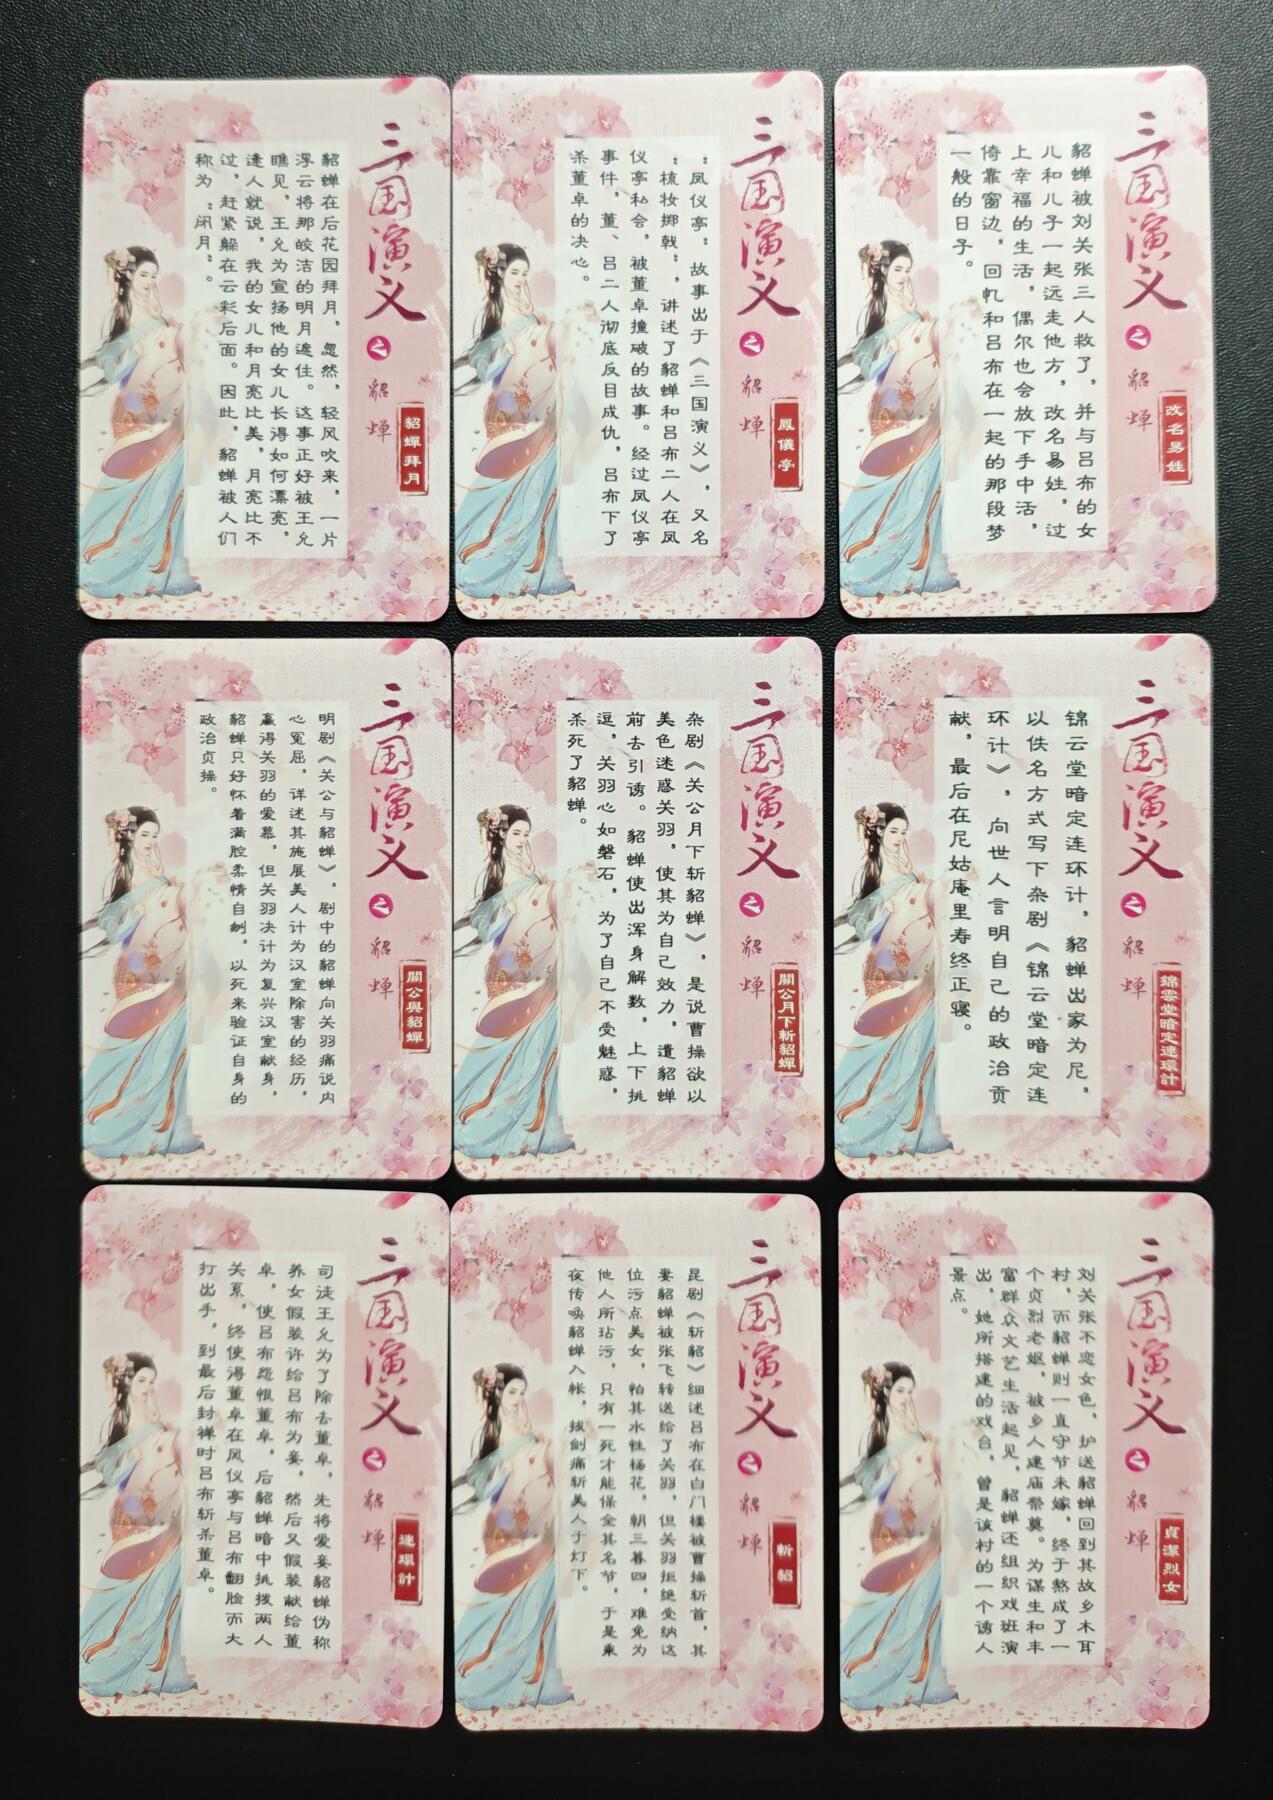 三国演义之貂蝉
貂蟬拜月
貂蝉在后花园拜月，忽然，轻风吹来，一片
浮云将那皎洁的明月遮住。这事正好被王允
瞧见，王允为宣扬他的女儿长得如何漂亮，
逢人就说，我的女儿和月亮比美，月亮比不
过，赶紧躲在云彩后面。因此，貂蝉被人们
称为“闭月”。
三国演义之貂蝉
鳳儀亭
“凤仪亭”故事出于《三国演义》，又名
“梳妆掷戟”，讲述了貂蝉和吕布二人在凤
仪亭私会，被董卓撞破的故事。经过凤仪亭
事件，董、吕二人彻底反目成仇，吕布下了
杀董卓的决心。
三国演义之貂蝉
改名易姓
貂蝉被刘关张三人救了，并与吕布的女
儿和儿子一起远走他方，改名易姓，过
上幸福的生活，偶尔也会放下手中活，
倚靠窗边，回忆和吕布在一起的那段梦
一般的日子。
三国演义之貂蝉
關公與貂蟬
明剧《关公与貂蝉》，剧中的貂蝉向关羽痛说内
心冤屈，详述其施展美人计为汉室除害的经历，
赢得关羽的爱慕，但关羽决计为复兴汉室献身，
貂蝉只好怀着满腔柔情自刎，以死来验证自身的
政治贞操。
三国演义之貂蝉
關公月下斬貂蟬
杂剧《关公月下斩貂蝉》，是说曹操欲以
美色迷惑关羽，使其为自己效力，遣貂蝉
前去引诱。貂蝉使出浑身解数，上下挑
逗，关羽心如磐石，为了自己不受魅惑，
杀死了貂蝉。
三国演义之貂蝉
錦雲堂暗定連環計
锦云堂暗定连环计，貂蝉出家为尼，
以佚名方式写下杂剧《锦云堂暗定连
环计》，向世人言明自己的政治贡
献，最后在尼姑庵里寿终正寝。
三国演义之貂蝉
連環計
司徒王允为了除去董卓，先将爱妾貂蝉伪称
养女假装许给吕布为妾，然后又假装献给董
卓，使吕布怨恨董卓，后貂蝉暗中挑拨两人
关系，终使得董卓在凤仪亭与吕布翻脸而大
打出手，到最后封禅时吕布斩杀董卓。
三国演义之貂蝉
斬貂
昆剧《斩貂》细述吕布在白门楼被曹操斩首，其
妻貂蝉被张飞转送给了关羽，但关羽拒绝受纳这
位污点美女，怕其水性杨花，朝三暮四，难免为
他人所玷污，只有一死才能保全其名节，于是乘
夜传唤貂蝉入帐，拔剑痛斩美人于灯下。
三国演义之貂蝉
貞潔烈女
刘关张不恋女色，护送貂蝉回到其故乡木耳
村，而貂蝉则一直守节未嫁，终于熬成了一
个贞烈老妪，被乡人建庙祭奠。为谋生和丰
富群众文艺生活起见，貂蝉还组织戏班演
出，她所搭建的戏台，曾是该村的一个诱人
景点。